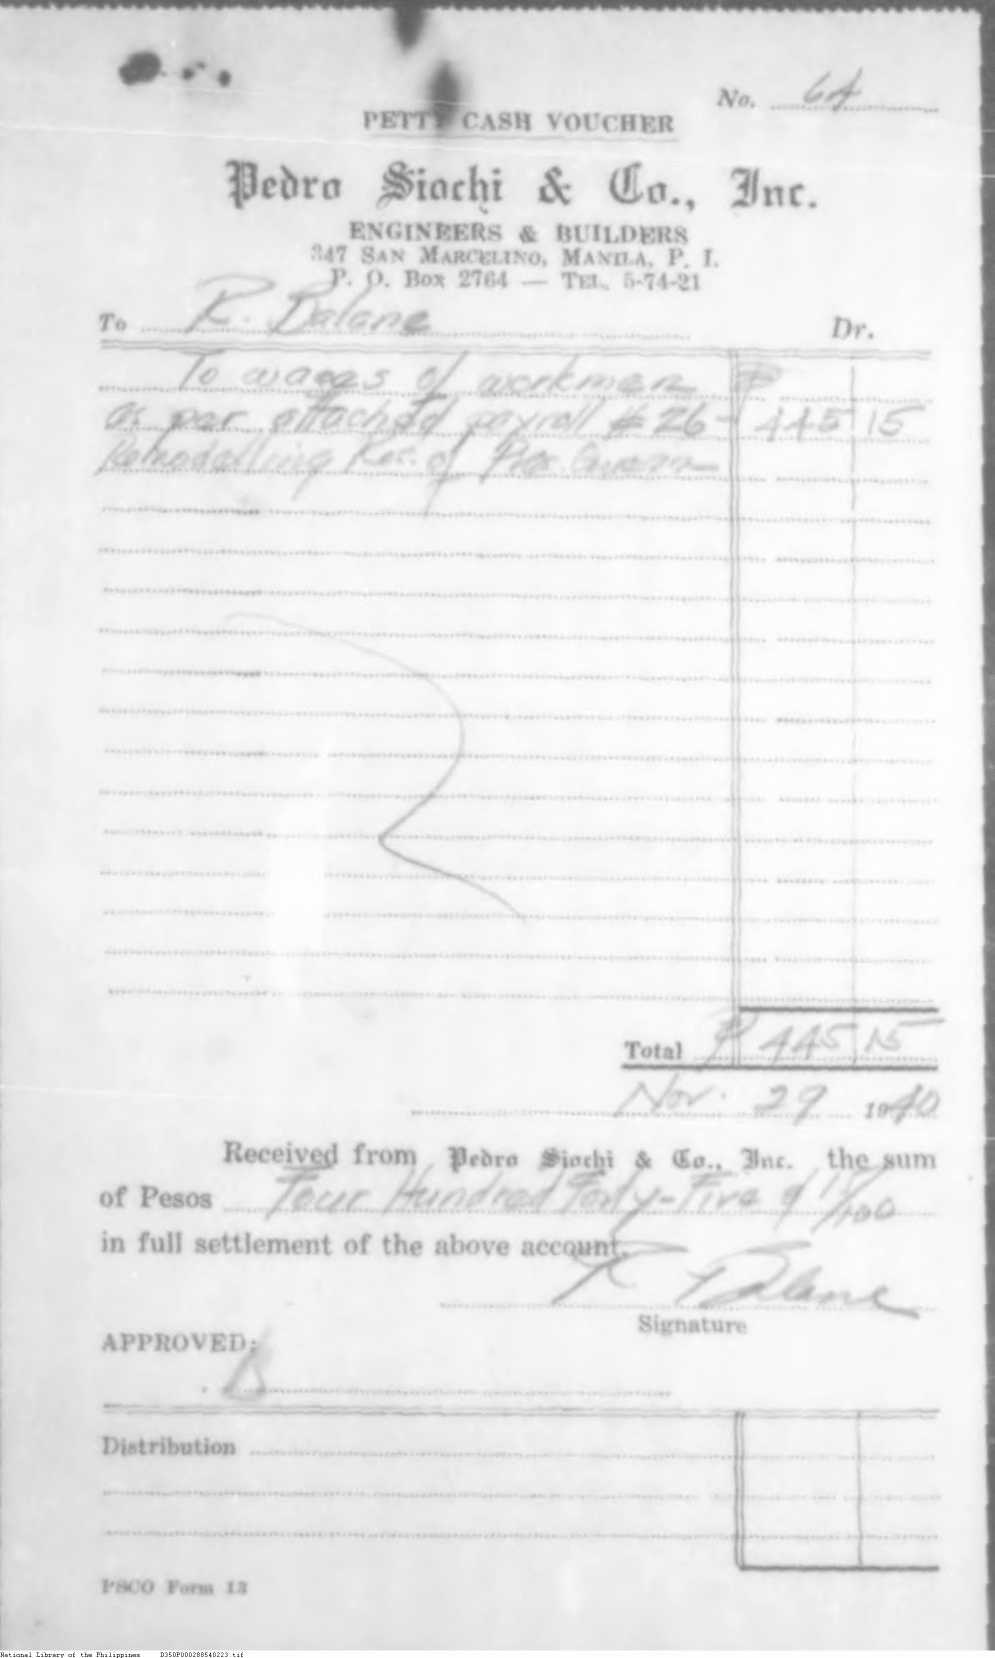 No. 64
PETTY CASH VOUCHER
Pedro Siochi & Co., Inc.
ENGINEERS & BUILDERS
347 SAN MARCELINO, MANILA, P. I.
P. O. Box 2764 — TEL. 5-74-21
To R. Balane Dr.
To wages of workmen ₱
as per attached payroll # 26- 445 15
Remodelling Res. of Pres. Quezon
Total ₱ 445 15
Nov. 29 1940
Received from Pedro Siochi & Co., Inc. the sum
of Pesos Four Hundred Forty-Five & 15/100
in full settlement of the above account.
R Balane
Signature
APPROVED:
Distribution
PSCO Form 13
National Library of the Philippines D350P000288540223.tif